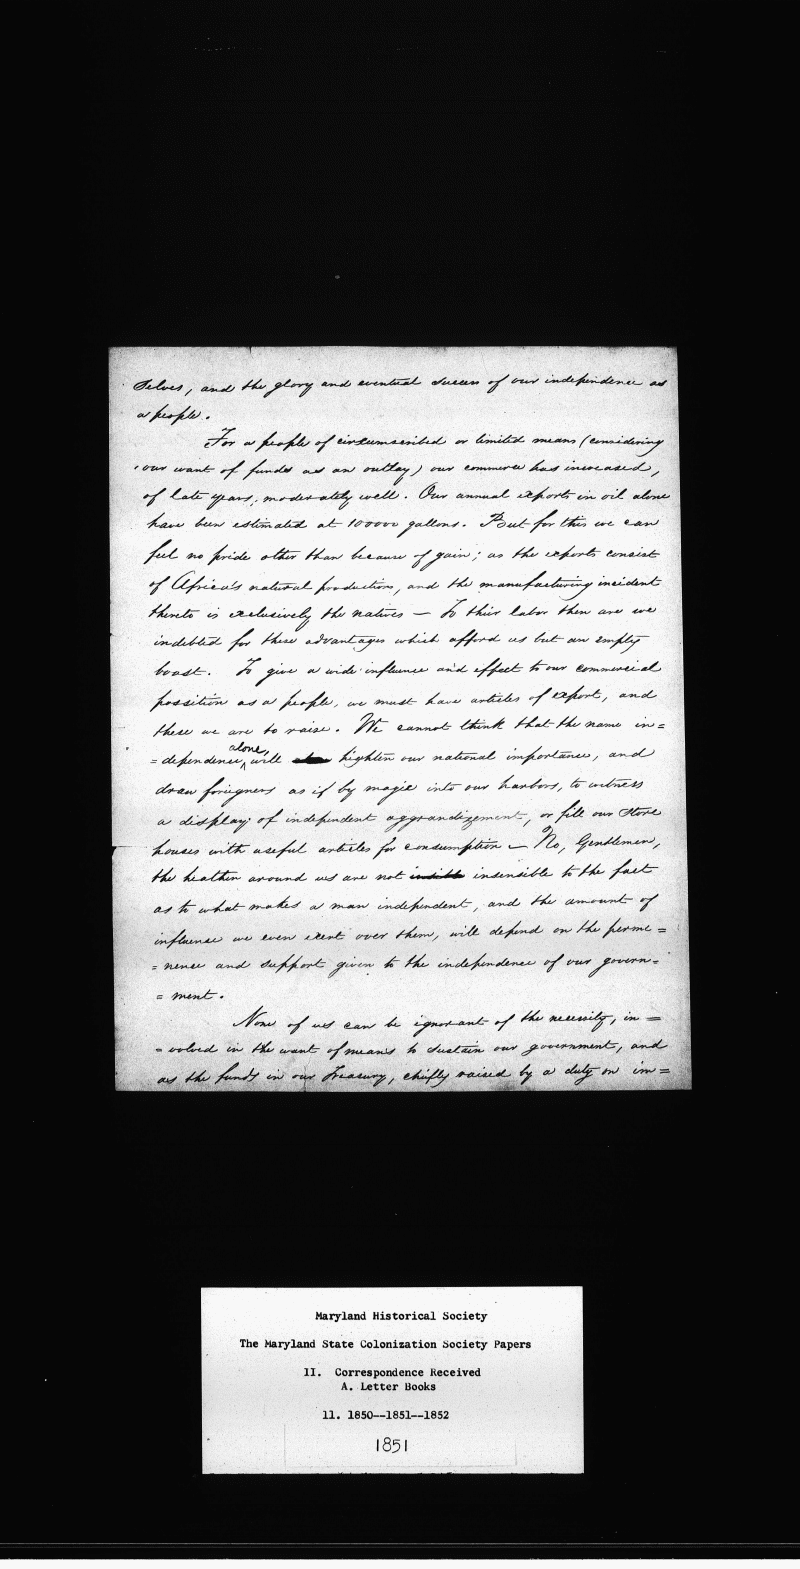 selves, and the glory and eventual success of our independence as
a people.
For a people of circumscribed or limited means (considering
our want of funds as an outlay) our commerce has increased,
of late years, moderately well. Our annual exports in oil alone
have been estimated at 100000 gallons. But for this we can
feel no pride other than because of gain; as the exports consist
of Africa's natural productions, and the manufacturing incident
thereto is exclusively the natives — To their labor then are we
indebted for these advantages which afford us but an empty
boast. To give a wide influence and effect to our commercial
possition as a people, we must have articles of export, and
these we are to raise. We cannot think that the name in=
=dependence, alone, will highten our national importance, and
draw foriegners as if by magic into our harbors, to witness
a display of independent aggrandizement, or fill our store
houses with useful articles for consumption — No, Gentlemen,
the heathen around us are not insensible to the fact
as to what makes a man independent, and the amount of
influence we even exert over them, will depend on the perme=
=nence and support given to the independence of our govern=
=ment.
None of us can be ignorant of the necessity, in=
=volved in the want of means to sustain our government, and
as the funds in our Treasury, chiefly raised by a duty on im=
Maryland Historical Society
The Maryland State Colonization Society Papers
II. Correspondence Received
A. Letter Books
11. 1850--1851--1852
1851